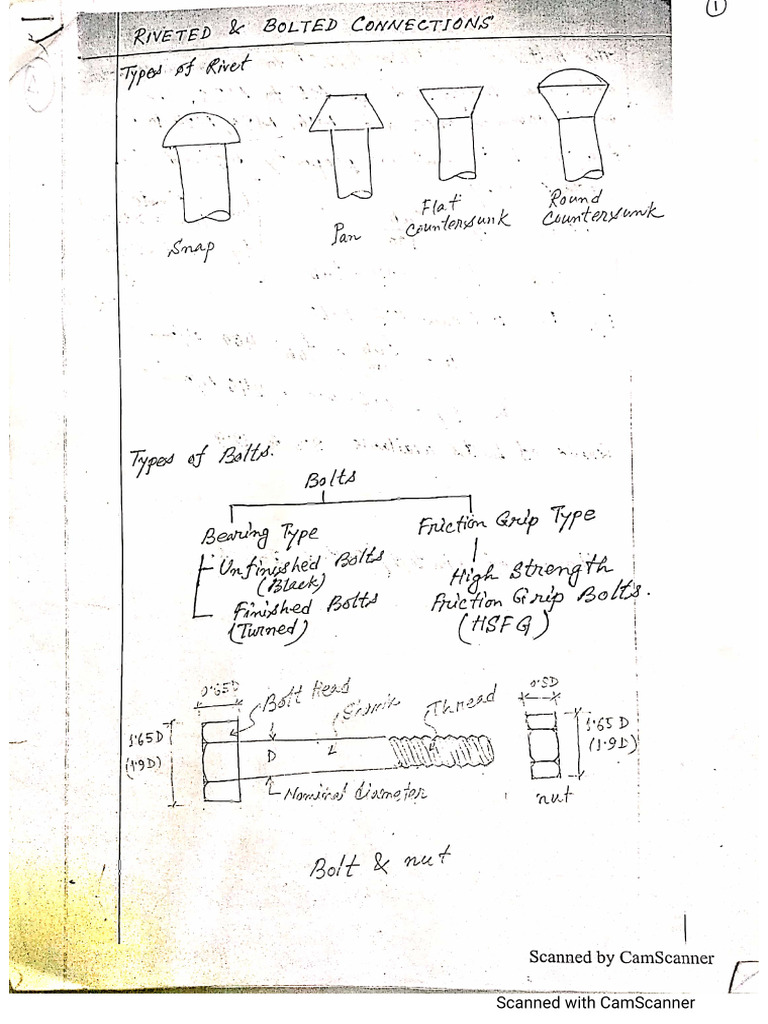 1
RIVETED & BOLTED CONNECTIONS
Types of Rivet
Snap
Pan
Flat
Countersunk
Round
Countersunk
Types of Bolts.
Bolts
Bearing Type
Unfinished Bolts
(Black)
Finished Bolts
(Turned)
Friction Grip Type
High Strength
Friction Grip Bolts.
(HSFG)
0.65D
Bolt Head
Shank
Thread
0.5D
1.65D
(1.9D)
D
Nominal diameter
1.65D
(1.9D)
nut
Bolt & nut
Scanned by CamScanner
Scanned with CamScanner